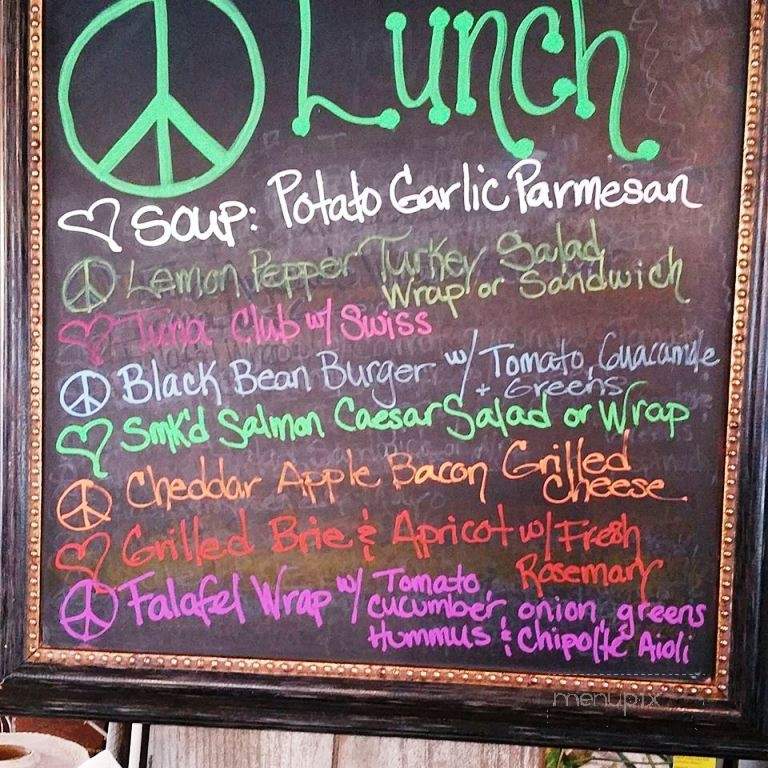 Lunch
Soup: Potato Garlic Parmesan
Lemon Pepper Turkey Salad
Wrap or Sandwich
Tuna Club w/ Swiss
Black Bean Burger w/ Tomato, Guacamole
+ Greens
Smk'd Salmon Caesar Salad or Wrap
Cheddar Apple Bacon Grilled
Cheese
Grilled Brie & Apricot w/ Fresh
Rosemary
Falafel Wrap w/ Tomato,
cucumber, onion, greens
Hummus & Chipotle Aioli
menupix